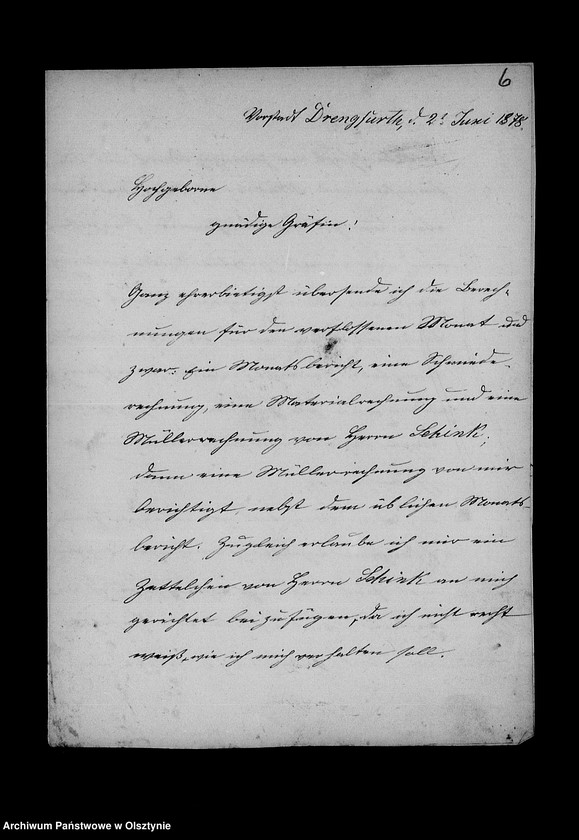 6
Vorstadt Drengfurth, d. 2t Juni 1878.
Hochgeborne
gnädige Gräfin!
Ganz ehrerbietigst übersende ich die Berech-
nungen für den verflossenen Monat und
zwar: Ein Monatsbericht, eine Schmiede-
rechnung, eine Materialrechnung und eine
Müllerrechnung von Herrn Schink;
dann eine Müllerrechnung von mir
berichtigt nebst dem üblichen Monats-
bericht. Zugleich erlaube ich mir ein
Zettelchen von Herrn Schink an mich
gerichtet beizufügen, da ich nicht recht
weiß, wie ich mich verhalten soll.
Archiwum Państwowe w Olsztynie